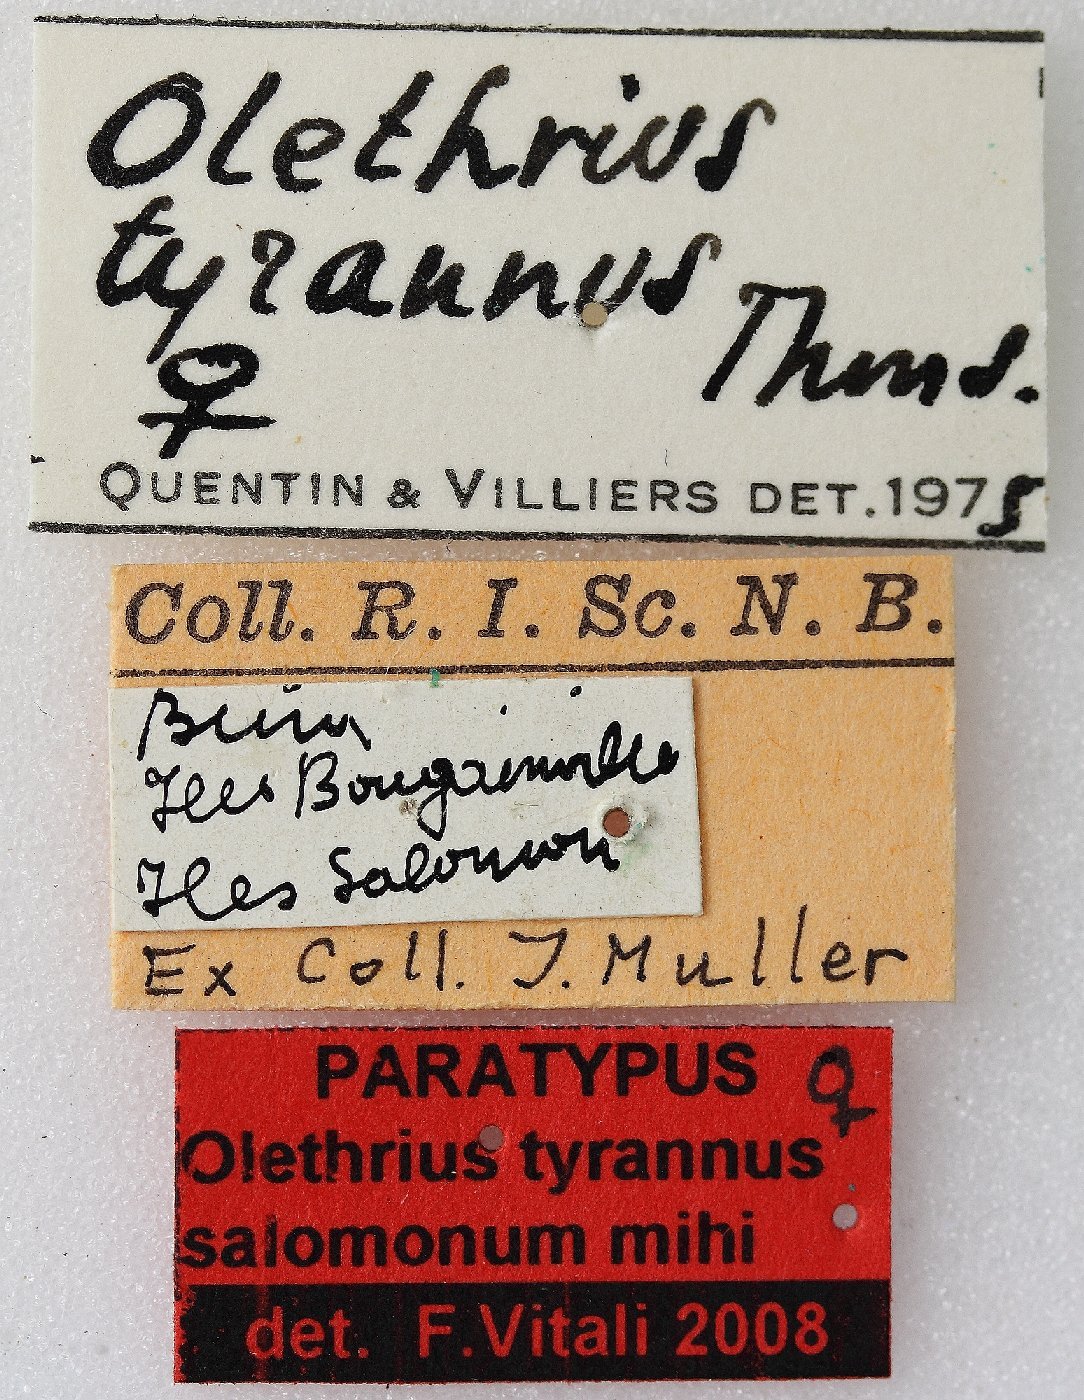 Olethrius
tyrannus
Thoms.
♀
QUENTIN & VILLIERS DET. 1975
Coll. R. I. Sc. N. B.
Iles Bougainville
Iles Salomon
Ex Coll. J. Muller
PARATYPUS ♀
Olethrius tyrannus
salomonum mihi
det. F.Vitali 2008